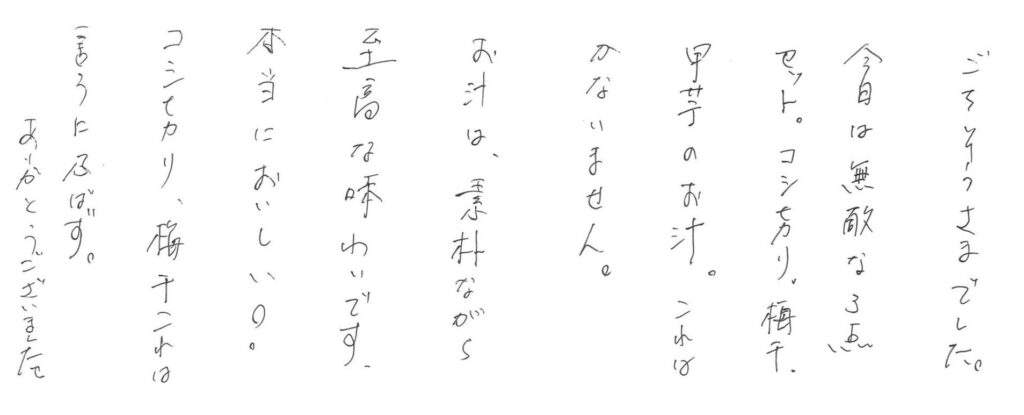 ごちそうさまでした。
今日は無敵な3点
セット。コシヒカリ。梅干、
里芋のお汁。これは
かないません。
お汁は、素朴ながら
至高な味わいです、
本当においしいの。
コシヒカリ、梅干これは
言うに及ばず。
ありがとうございました